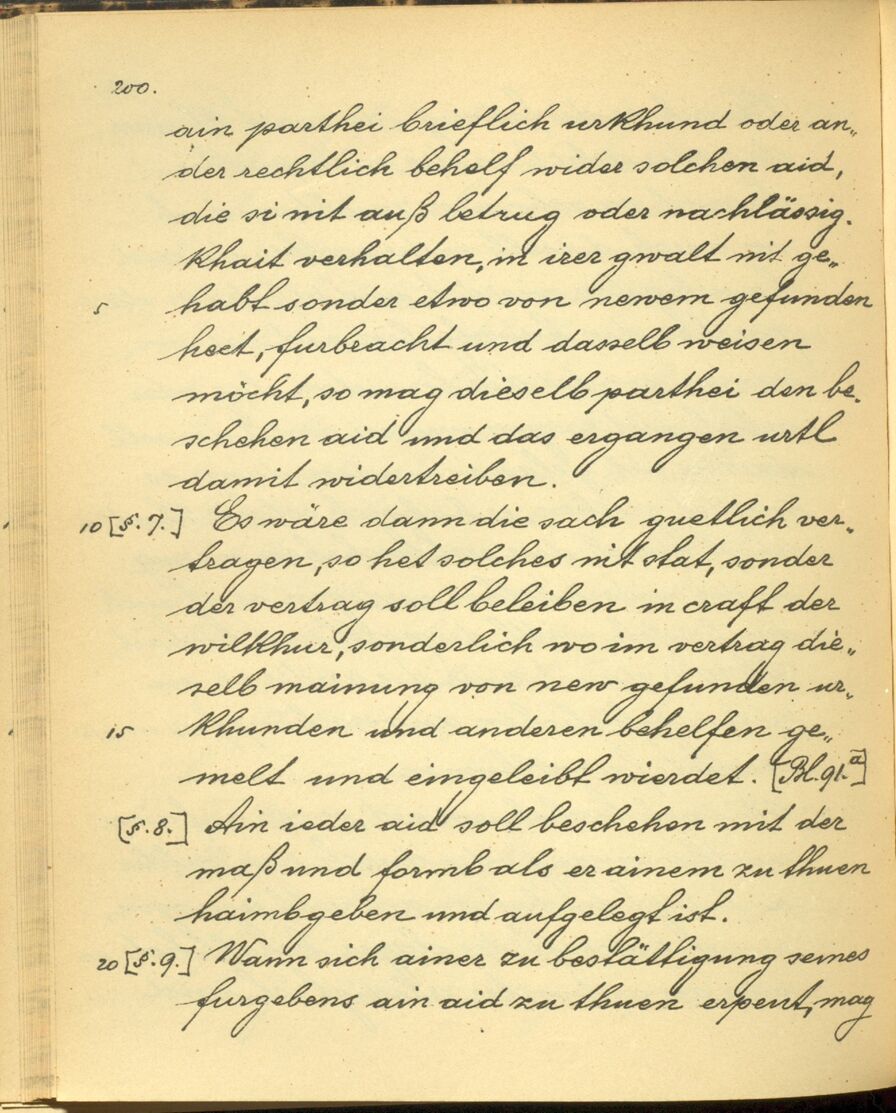 200.
ain parthei brieflich urkhund oder an„
der rechtlich behelf wider solchen aid,
die si nit auß betrug oder nachlässig.
khait verhalten, in irer gwalt nit ge„
5 habt sonder etwo von newem gefunden
heet, furbracht und dasselb weisen
möcht, so mag dieselb parthei den be.
schehen aid und das ergangen urtl
damit widertreiben.
10 [§. 7.] Es wäre dann die sach guetlich ver„
tragen, so het solches nit stat, sonder
der vertrag soll beleiben in craft der
wilkhur, sonderlich wo im vertrag die„
selb mainung von new gefunden ur„
15 khunden und anderen behelfen ge„
melt und eingeleibt wierdet. [Bl. 91.a]
[§. 8.] Ain ieder aid soll beschehen mit der
maß und formb als er ainem zu thuen
haimbgeben und aufgelegt ist.
20 [§. 9.] Wann sich ainer zu bestättigung seines
furgebens ain aid zu thuen erpeut, mag